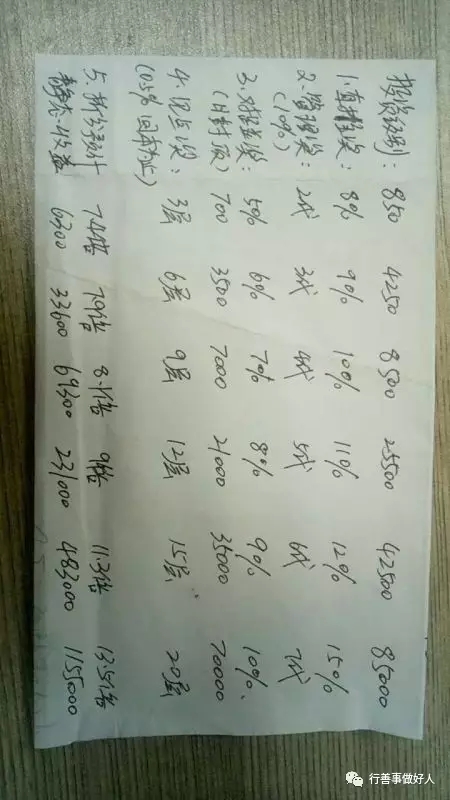 投资级别: 850 4250 8500 25500 42500 85000
1.直推奖: 8% 9% 10% 11% 12% 15%
2.管理奖: 2代 3代 4代 5代 6代 7代
(10%)
3.对碰奖: 5% 6% 7% 8% 9% 10%
(日封顶) 700 3500 7000 21000 35000 70000
4.见点奖: 3层 6层 9层 12层 15层 20层
(0.5% 回本为止)
5.拆分预计 7.4倍 7.9倍 8.1倍 9倍 11.3倍 13.5倍
静态收益 6300 33600 69300 231000 483000 1155000
行善事做好人